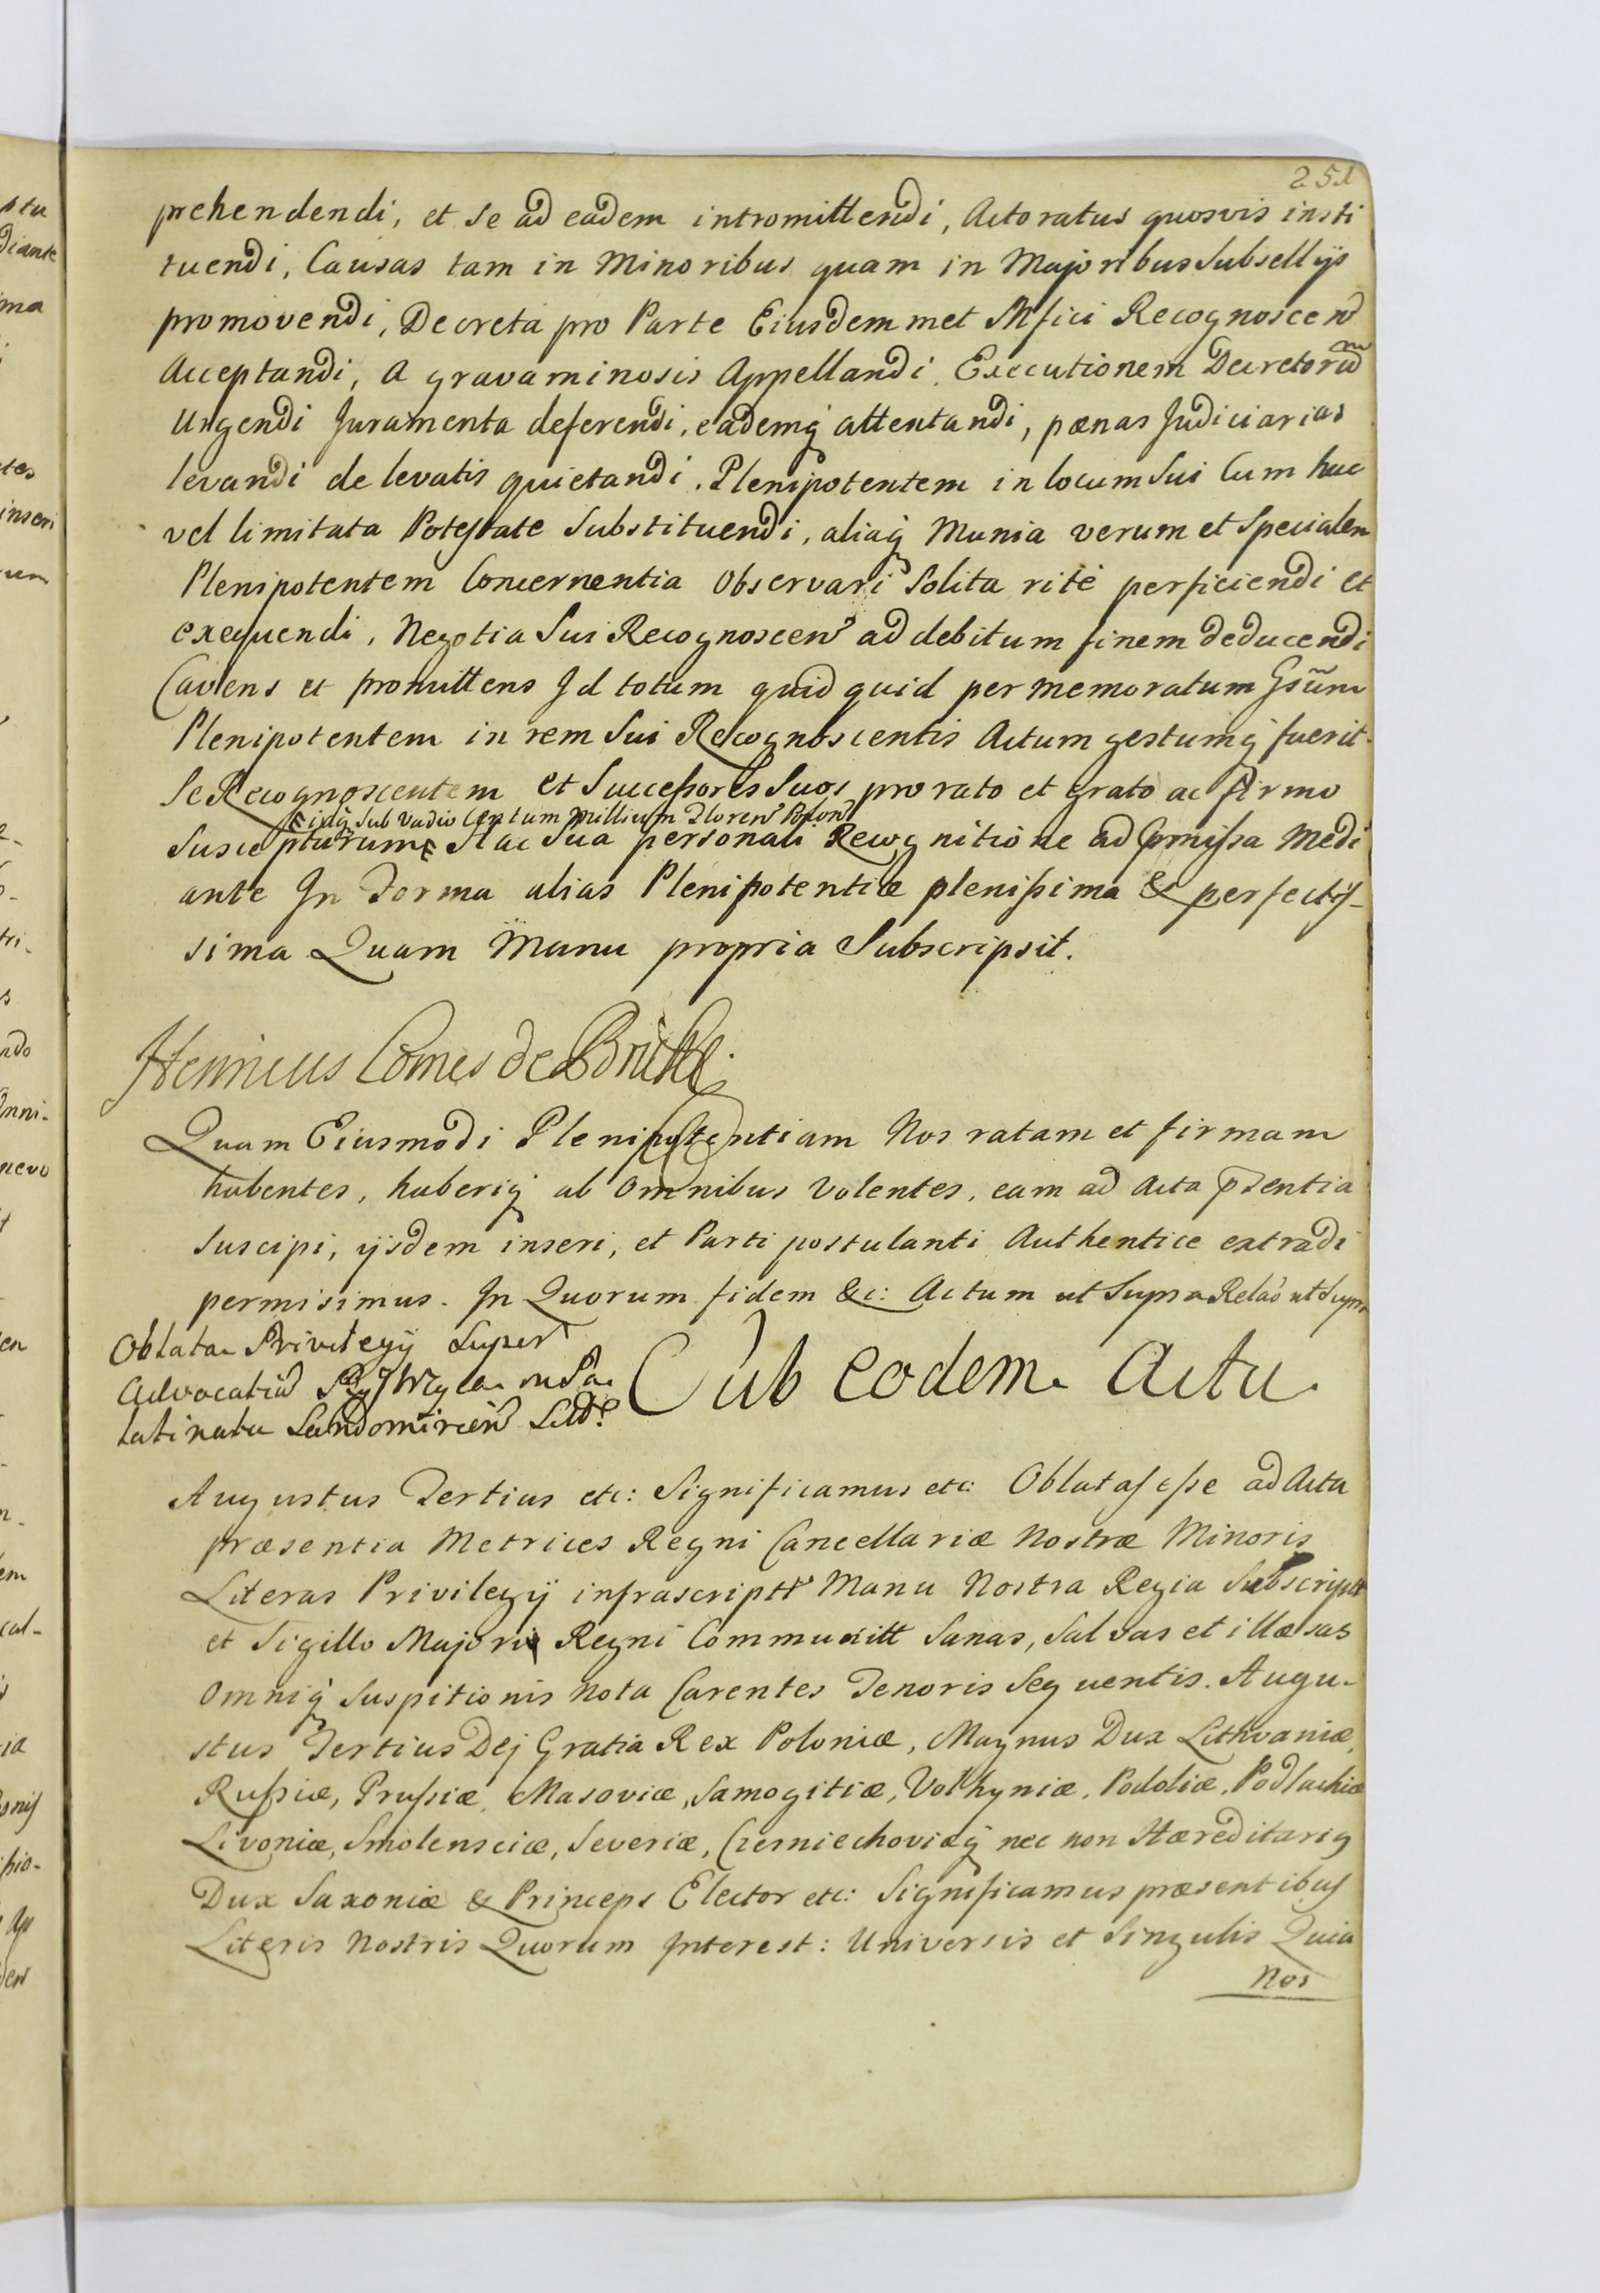 251
prehendendi, et se ad eadem intromittendi, Actoratus quosvis insti
tuendi, Causas tam in Minoribus quam in Majoribus Subsellijs
promovendi, Decreta pro Parte Eiusdemmet Mfici Recognoscen
Acceptandi, A gravaminosis Appellandi, Executionem Decretorum
Urgendi Juramenta deferendi, eademq attentandi, pænas Judiciarias
levandi de levatis quietandi, Plenipotentem in locum Sui Cum hac
vel limitata Potestate Substituendi, aliaq Munia verum et Specialem
Plenipotentem Concernentia Observari Solita rité perficiendi et
exequendi, Negotia Sui Recognoscen ad debitum finem deducendi
Cavens et promittens Id totum quidquid per memoratum Gsum
Plenipotentem in rem Sui Recognoscentis Actum gestumq fuerit
Se Recognoscentem et Successores Suos pro rato et grato ac firmo
Idq Sub Vadio Centum Millium Floren Polon
Suscepturum Hac Sua personali Recognitione ad præmissa Medi
ante In Forma alias Plenipotentiæ plenissima & perfectis-
sima Quam Manu propria Subscripsit.
Henricus Comes de Brühl
Quam Eiusmodi Plenipotentiam Nos ratam et firmam
habentes, haberiq ab Omnibus Volentes, eam ad Acta pstentia
Suscipi, ijsdem inseri, et Parti postulanti Authentice extradi
permisimus. In Quorum fidem &c: Actum ut Supra Relao ut Supra
Oblata Privilegij Super
Advocatia in Pa
latinatu Sandomirien
Sub eodem Actu
Augustus Tertius etc: Significamus etc: Oblatas esse ad Acta
præsentia Metrices Regni Cancellariæ Nostræ Minoris
Literas Privilegij infrascriptt Manu Nostra Regia Subscriptt
et Sigillo Majoris Regni Communitt Sanas, Salvas et illæsas
Omniq Suspitionis nota Carentes Tenoris Sequentis. Augu-
stus Tertius Dej Gratia Rex Poloniæ, Magnus Dux Lithvaniæ,
Russiæ, Prussiæ, Masoviæ, Samogitiæ, Volhyniæ, Podoliæ, Podlachiæ
Livoniæ, Smolensciæ, Severiæ, Czerniechoviæq nec non Hæreditarig
Dux Saxoniæ & Princeps Elector etc: Significamus præsentibus
Literis Nostris Quorum Interest: Universis et Singulis Quia
Nos